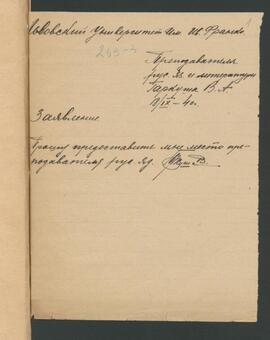 Львовский Университет Им. Ив. Франко
263-3
Преподавателя
рус. яз. и литературы
Гаркуша В. А.
Заявление
Прошу предоставить мне место пре-
подавателя рус. яз.